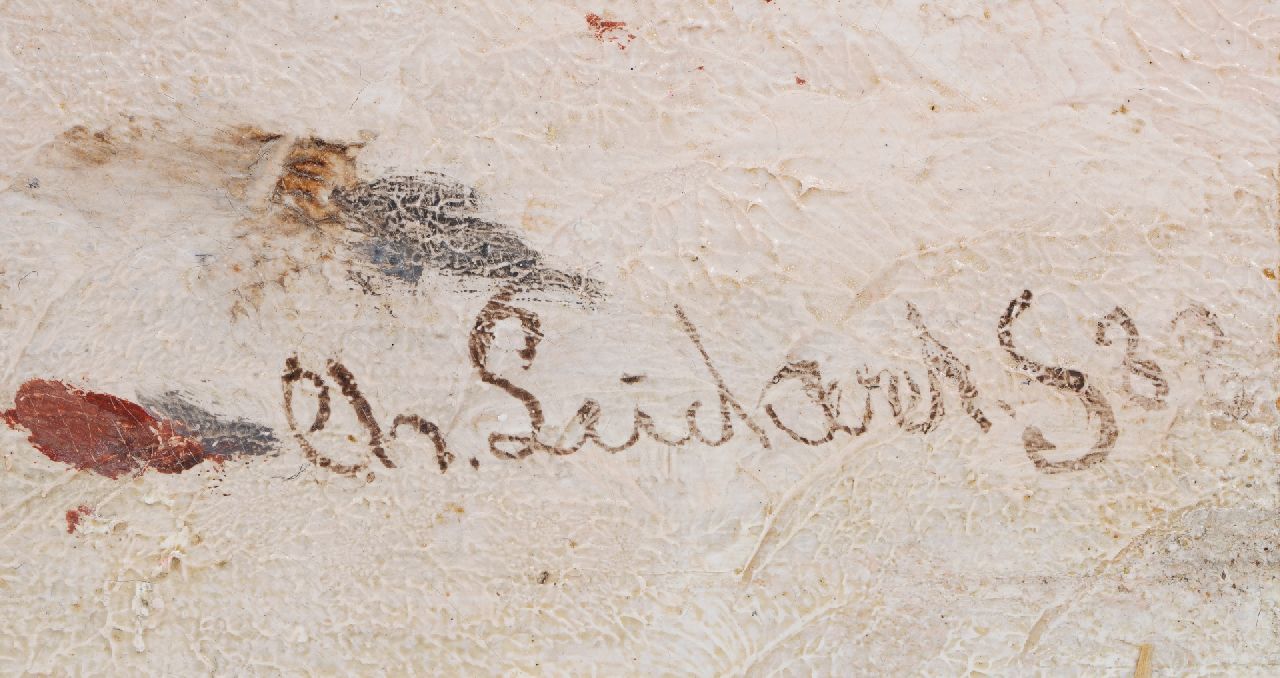 Ch. Leickert.